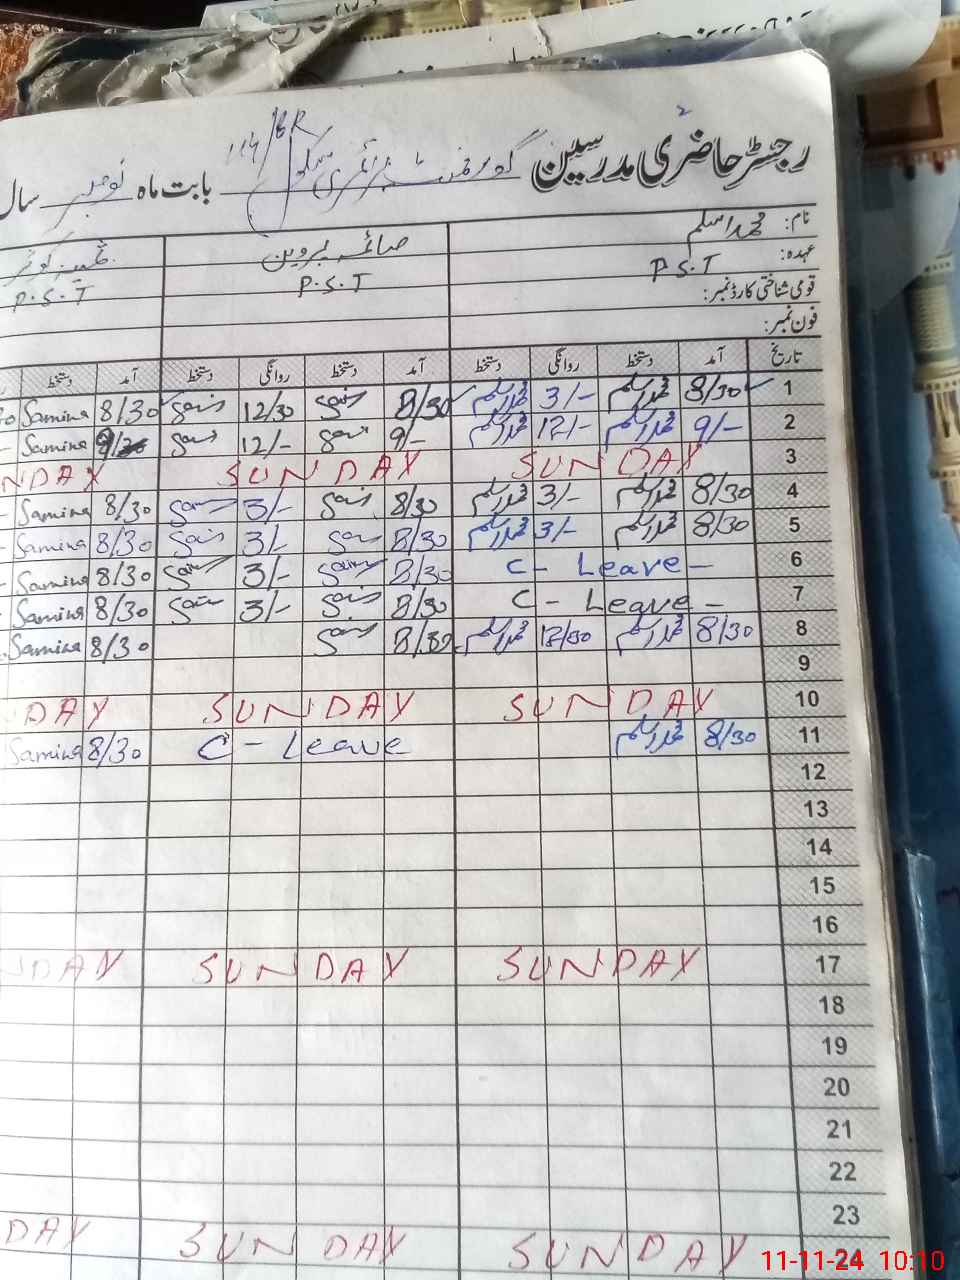 رجسٹر حاضری مدرسین گورنمنٹ پرائمری سکول 114/6R بابت ماہ نومبر سال
نام: محمد اسلم صائمہ پروین
عہدہ: P.S.T P.S.T P.S.T
قومی شناختی کارڈ نمبر:
فون نمبر:
تاریخ آمد دستخط روانگی دستخط آمد دستخط روانگی دستخط آمد دستخط
1 8/30 محمد اسلم 3/- محمد اسلم 8/30 12/30 8/30 Samina
2 9/- محمد اسلم 12/- محمد اسلم 9/- 12/- Samina
3 SUNDAY SUNDAY NDAY
4 8/30 محمد اسلم 3/- محمد اسلم 8/30 3/- 8/30 Samina
5 8/30 محمد اسلم 3/- محمد اسلم 8/30 3/- 8/30 Samina
6 C- Leave - 8/30 3/- 8/30 Samina
7 C - Leave - 8/30 3/- 8/30 Samina
8 8/30 محمد اسلم 12/30 محمد اسلم 8/30 8/30 Samina
9
10 SUNDAY SUNDAY DAY
11 8/30 محمد اسلم C - Leave 8/30 Samina
12
13
14
15
16
17 SUNDAY SUNDAY NDAY
18
19
20
21
22
23
24 SUNDAY SUNDAY DAY
11-11-24 10:10